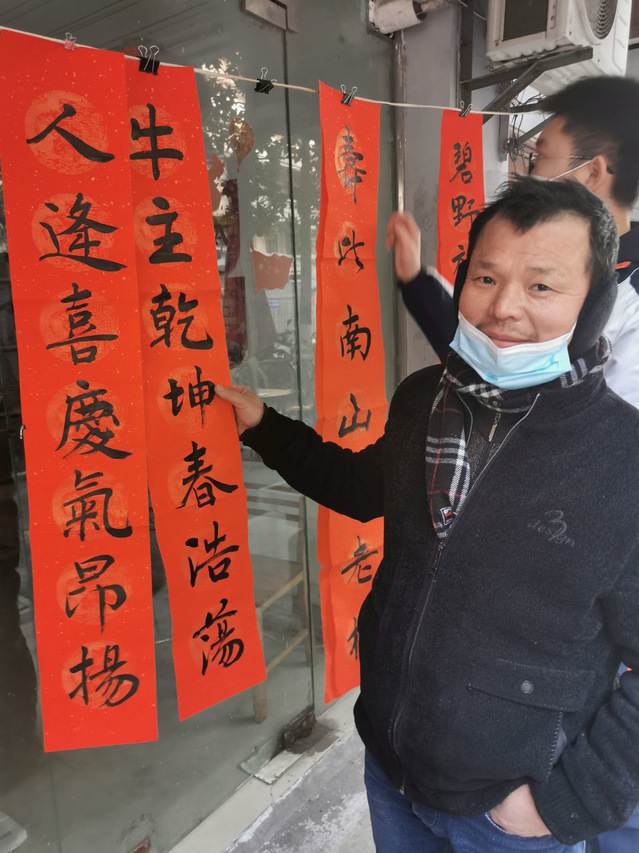 碧野
壽比南山老
牛主乾坤春浩蕩
人逢喜慶氣昂揚